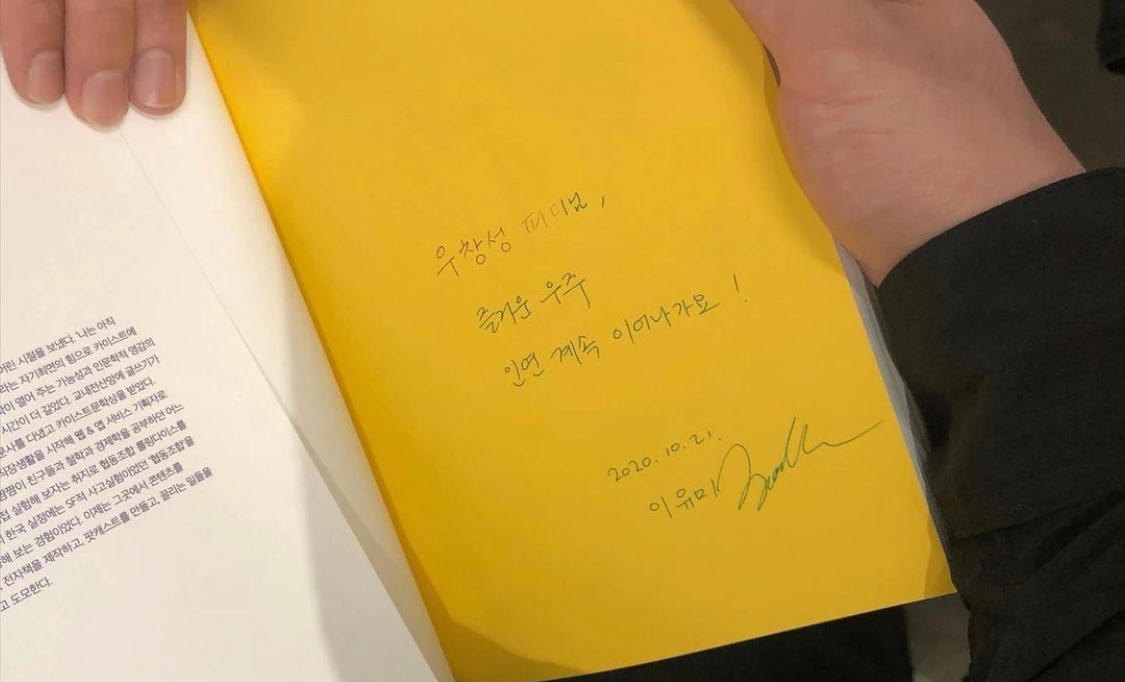 어린 시절을 보냈다. '나는 아직
라는 자기최면의 힘으로 카이스트에
이 열어 주는 가능성과 인문학적 영감의
시간이 더 길었다. 교내전산망에 글쓰기가
문사를 다녔고 카이스트문학상을 받았다.
직장생활을 시작해 웹 & 앱 서비스 기획자로
짬짬이 친구들과 철학과 경제학을 공부하던 어느
접 실험해 보자는 취지로 협동조합 롤링다이스를
한국 실정에는 SF적 사고실험이었던 '협동조합'을
해 보는 경험이었다. 이제는 그곳에서 콘텐츠를
전자책을 제작하고, 팟캐스트를 만들고, 끌리는 일들을
고 도모한다.
우창성 피디님,
즐거운 우주
인연 계속 이어나가요!
2020. 10. 21.
이유미